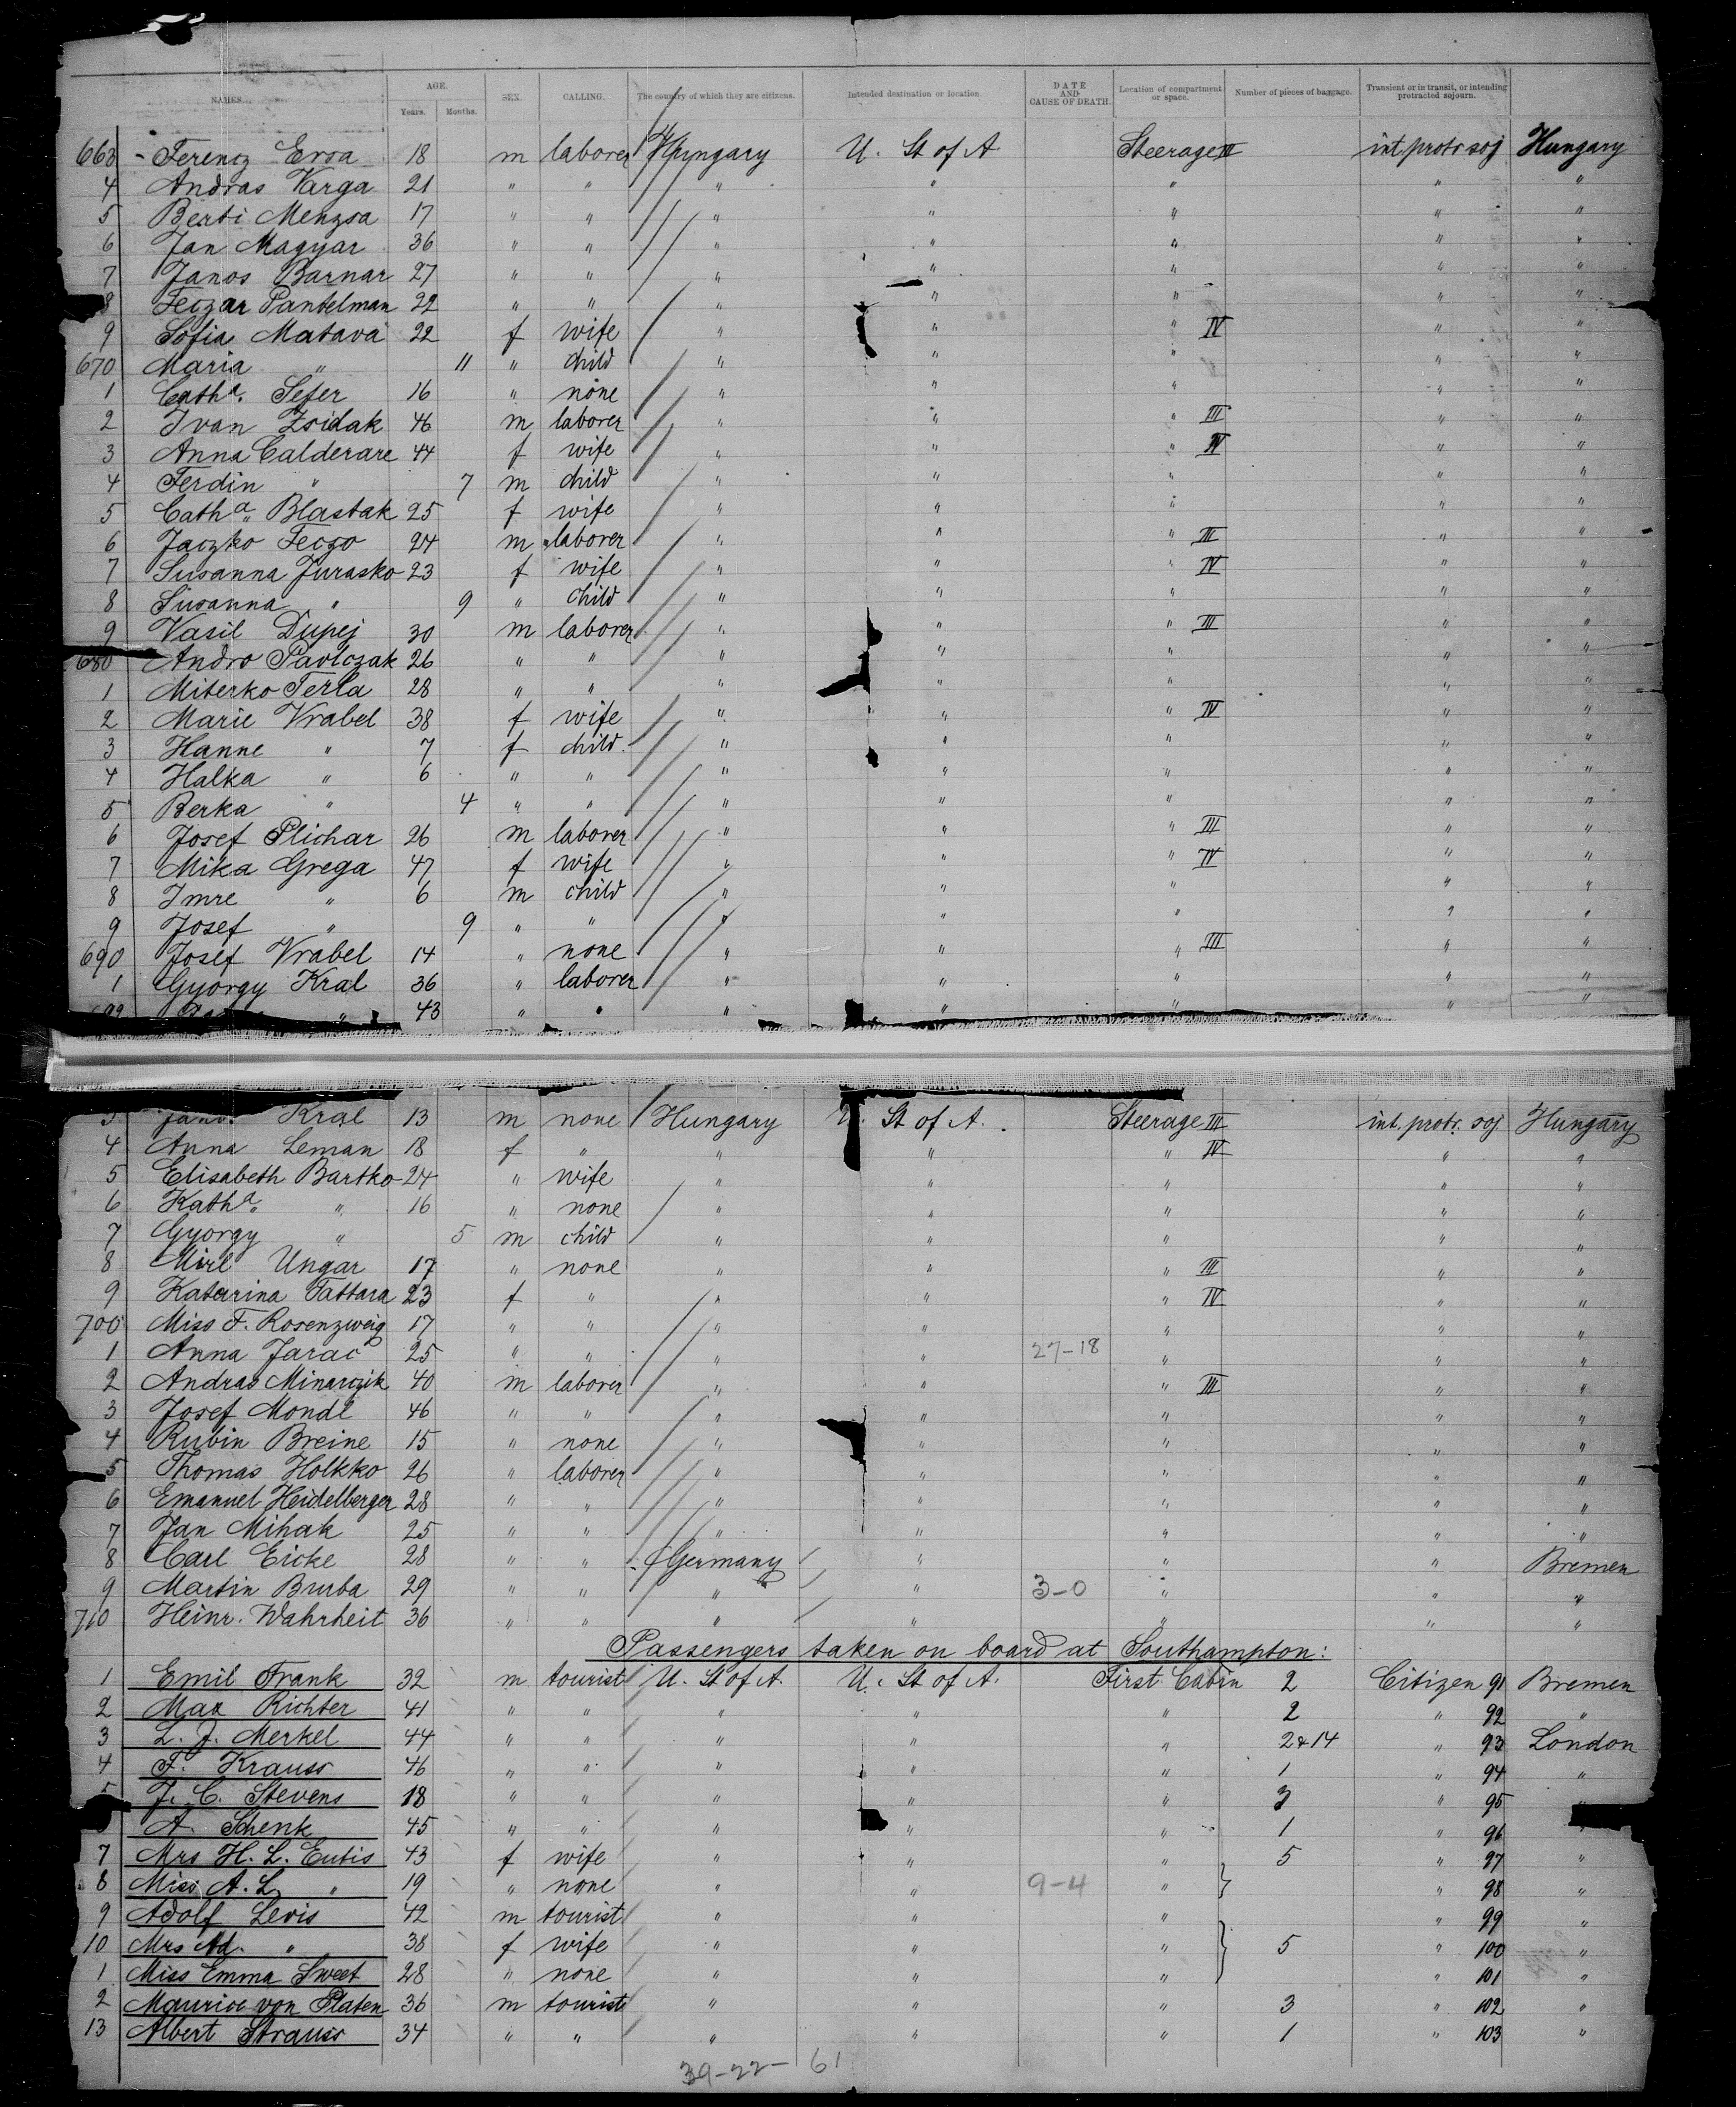 NAMES. AGE. Years. Months. SEX. CALLING. The country of which they are citizens. Intended destination or location. DATE AND CAUSE OF DEATH. Location of compartment or space. Number of pieces of baggage. Transient or in transit, or intending protracted sojourn.
663 - Ferencz Ersa 18 m laborer Hungary U. St of A Steerage III int, protr soj Hungary
4 Andras Varga 21 " " " " " " "
5 Berti Menzsa 17 " " " " " " "
6 Jan Magyar 36 " " " " " " "
7 Janos Barnar 27 " " " " " " "
8 Feczar Pantelman 22 " " " " " " "
9 Sofia Matava 22 f wife " " " IV " "
670 Maria " 11 " child " " " " "
1 Catha. Sefer 16 " none " " " " "
2 Ivan Zsidak 46 m laborer " " " III " "
3 Anna Calderare 44 f wife " " " IV " "
4 Ferdin " 7 m child " " " " "
5 Catha. Blastak 25 f wife " " " " "
6 Jaczko Feczo 24 m laborer " " " III " "
7 Susanna Jurasko 23 f wife " " " IV " "
8 Susanna " 9 " child " " " " "
9 Vasil Dupej 30 m laborer " " " III " "
680 Andro Pavlczak 26 " " " " " " "
1 Miterko Ferla 28 " " " " " " "
2 Marie Vrabel 38 f wife " " " IV " "
3 Hanne " 7 f child. " " " " "
4 Halka " 6 " " " " " " "
5 Berka " 4 " " " " " " "
6 Josef Plichar 26 m laborer " " " III " "
7 Mika Grega 47 f wife " " " IV " "
8 Imre " 6 m child " " " " "
9 Josef " 9 " " " " " " "
690 Josef Vrabel 14 " none " " " III " "
1 Gyorgy Kral 36 " laborer " " " " "
" 43 " " " " " " "
3 Kral 13 m none Hungary U. St of A. Steerage III int, protr. soj Hungary
4 Anna Leman 18 f " " " " IV " "
5 Elisabeth Bartko 24 " wife " " " " "
6 Katha. " 16 " none " " " " "
7 Gyorgy " 5 m child " " " " "
8 Mirl Ungar 17 " none " " " III " "
9 Katarina Tattara 23 f " " " " IV " "
700 Miss F. Rosenzweig 17 " " " " " " "
1 Anna Jarac 25 " " " " 27-18 " " "
2 Andras Minarczik 40 m laborer " " " III " "
3 Josef Mondl 46 " " " " " " "
4 Rubin Breine 15 " none " " " " "
5 Thomas Holkko 26 " laborer " " " " "
6 Emanuel Heidelberger 28 " " " " " " "
7 Jan Mihak 25 " " " " " " "
8 Carl Eicke 28 " " Germany " " " Bremen
9 Martin Burba 29 " " " " 3-0 " " "
710 Heinr. Wahrheit 36 " " " " " " "
Passengers taken on board at Southampton:
1 Emil Frank 32 m tourist U. St of A. U. St of A. First Cabin 2 Citizen 91 Bremen
2 Max Richter 41 " " " " " 2 " 92 "
3 L. J. Merkel 44 " " " " " 2 & 14 " 93 London
4 F. Krauss 46 " " " " " 1 " 94 "
5 J. C. Stevens 18 " " " " " " 95 "
A. Schenk 45 " " " " " 1 " 96 "
7 Mrs H. L. Eutis 43 f wife " " " 5 " 97 "
8 Miss A. L. " 19 " none " " 9-4 " " 98 "
9 Adolf Levis 42 m tourist " " " " 99 "
10 Mrs Ad. " 38 f wife " " " 5 " 100 "
1 Miss Emma Sweet 28 " none " " " " 101 "
2 Maurice von Platen 36 m tourist " " " 3 " 102 "
13 Albert Strauss 34 " " " " " 1 " 103 "
39-22- 61